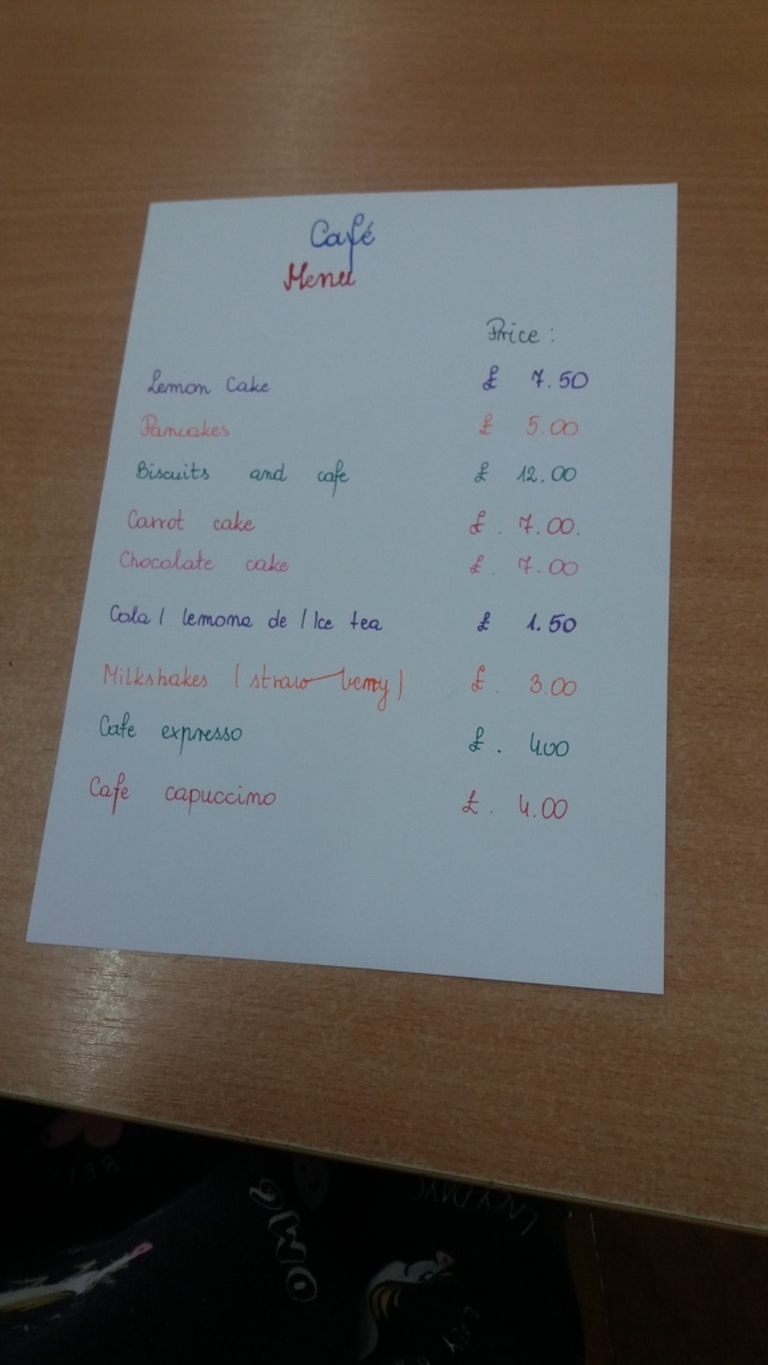 Café
Menu
Price :
Lemon Cake £ 7.50
Pancakes £ 5.00
Biscuits and cafe £ 12.00
Carrot cake £. 7.00.
Chocolate cake £. 7.00
Cola / lemona de / Ice tea £ 1.50
Milkshakes (straw berry) £. 3.00
Cafe expresso £. 4.00
Cafe capuccino £. 4.00
LAZY DAYS
OMG